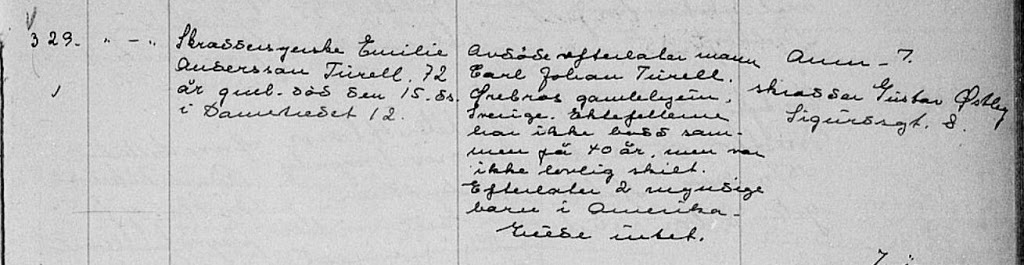 329. " - "
Skræddersyerske Emilie
Anderssan Türell. 72
år gml. död den 15. ds.
i Dannevedet 12.
Avdöde efterlater mann
Carl Johan Türell.
Örebros gamlehjem,
Sverige. Ektefellene
har ikke bodd sam-
men på 40 år, men var
ikke lovlig skilt.
Efterlater 2 myndige
barn i Amerika -
Eiede intet.
Anm - 7.
skrædder Gustav Østby
Sigurdsgt. 8.